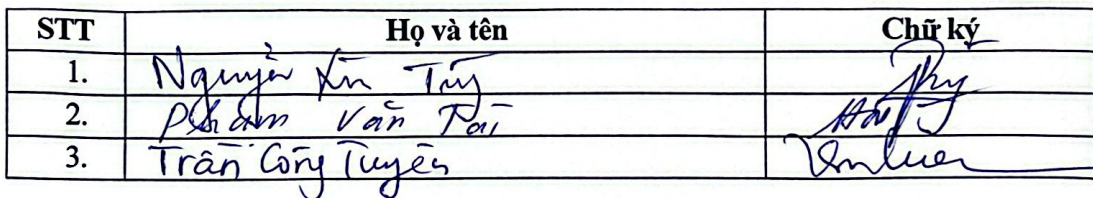 STT Họ và tên Chữ ký
1. Nguyễn
2. Phạm Văn Tài
3. Trần Công Tuyên